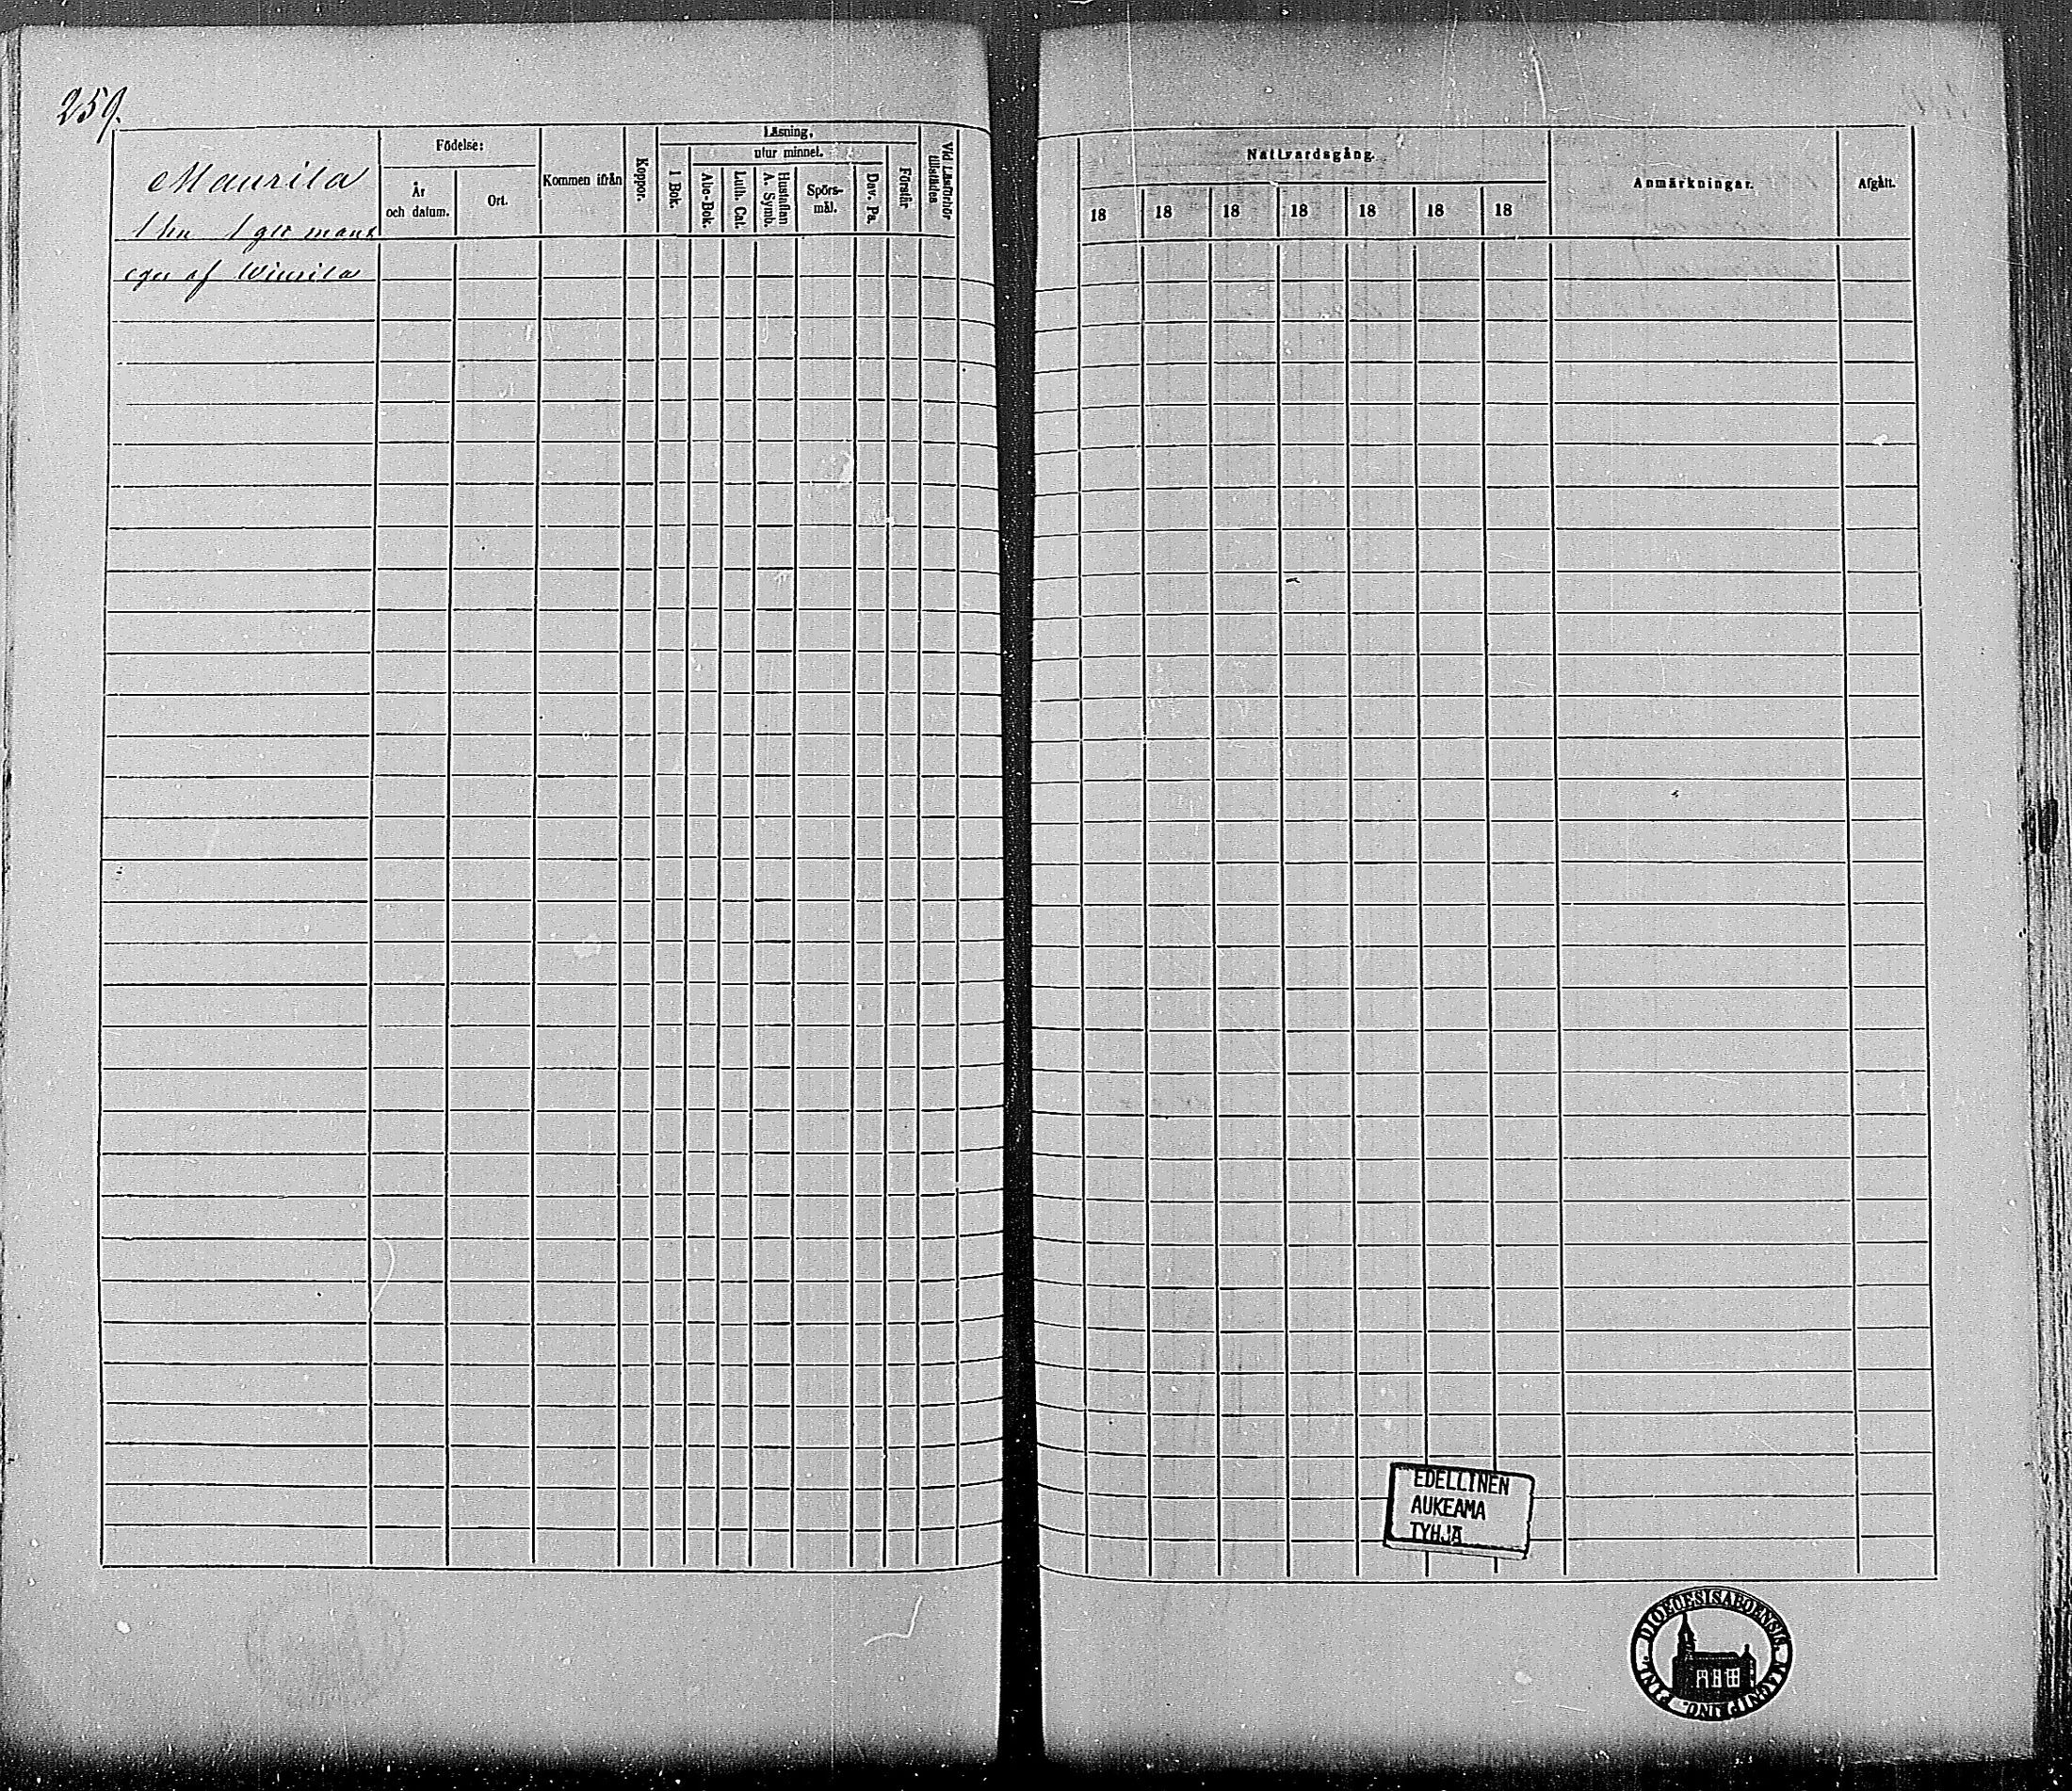 259.
Maurila
1 hn 1 gce mant
eges af Winrila
Födelse:
År
och datum.
Ort.
Kommen ifrån
Koppor.
Läsning,
utur minnet.
I Bok.
Abc-Bok.
Luth. Cat.
Hustaflan
A. Symb.
Spörs-
mål.
Dav. Ps.
Förstår
Vid Läsförhör
tillstädes
Nattvardsgång.
18 18 18 18 18 18 18
Anmärkningar.
Afgått.
EDELLINEN
AUKEAMA
TYHJÄ
DIOECESIS ABOENSIS MAGNI PRINC. FINL.